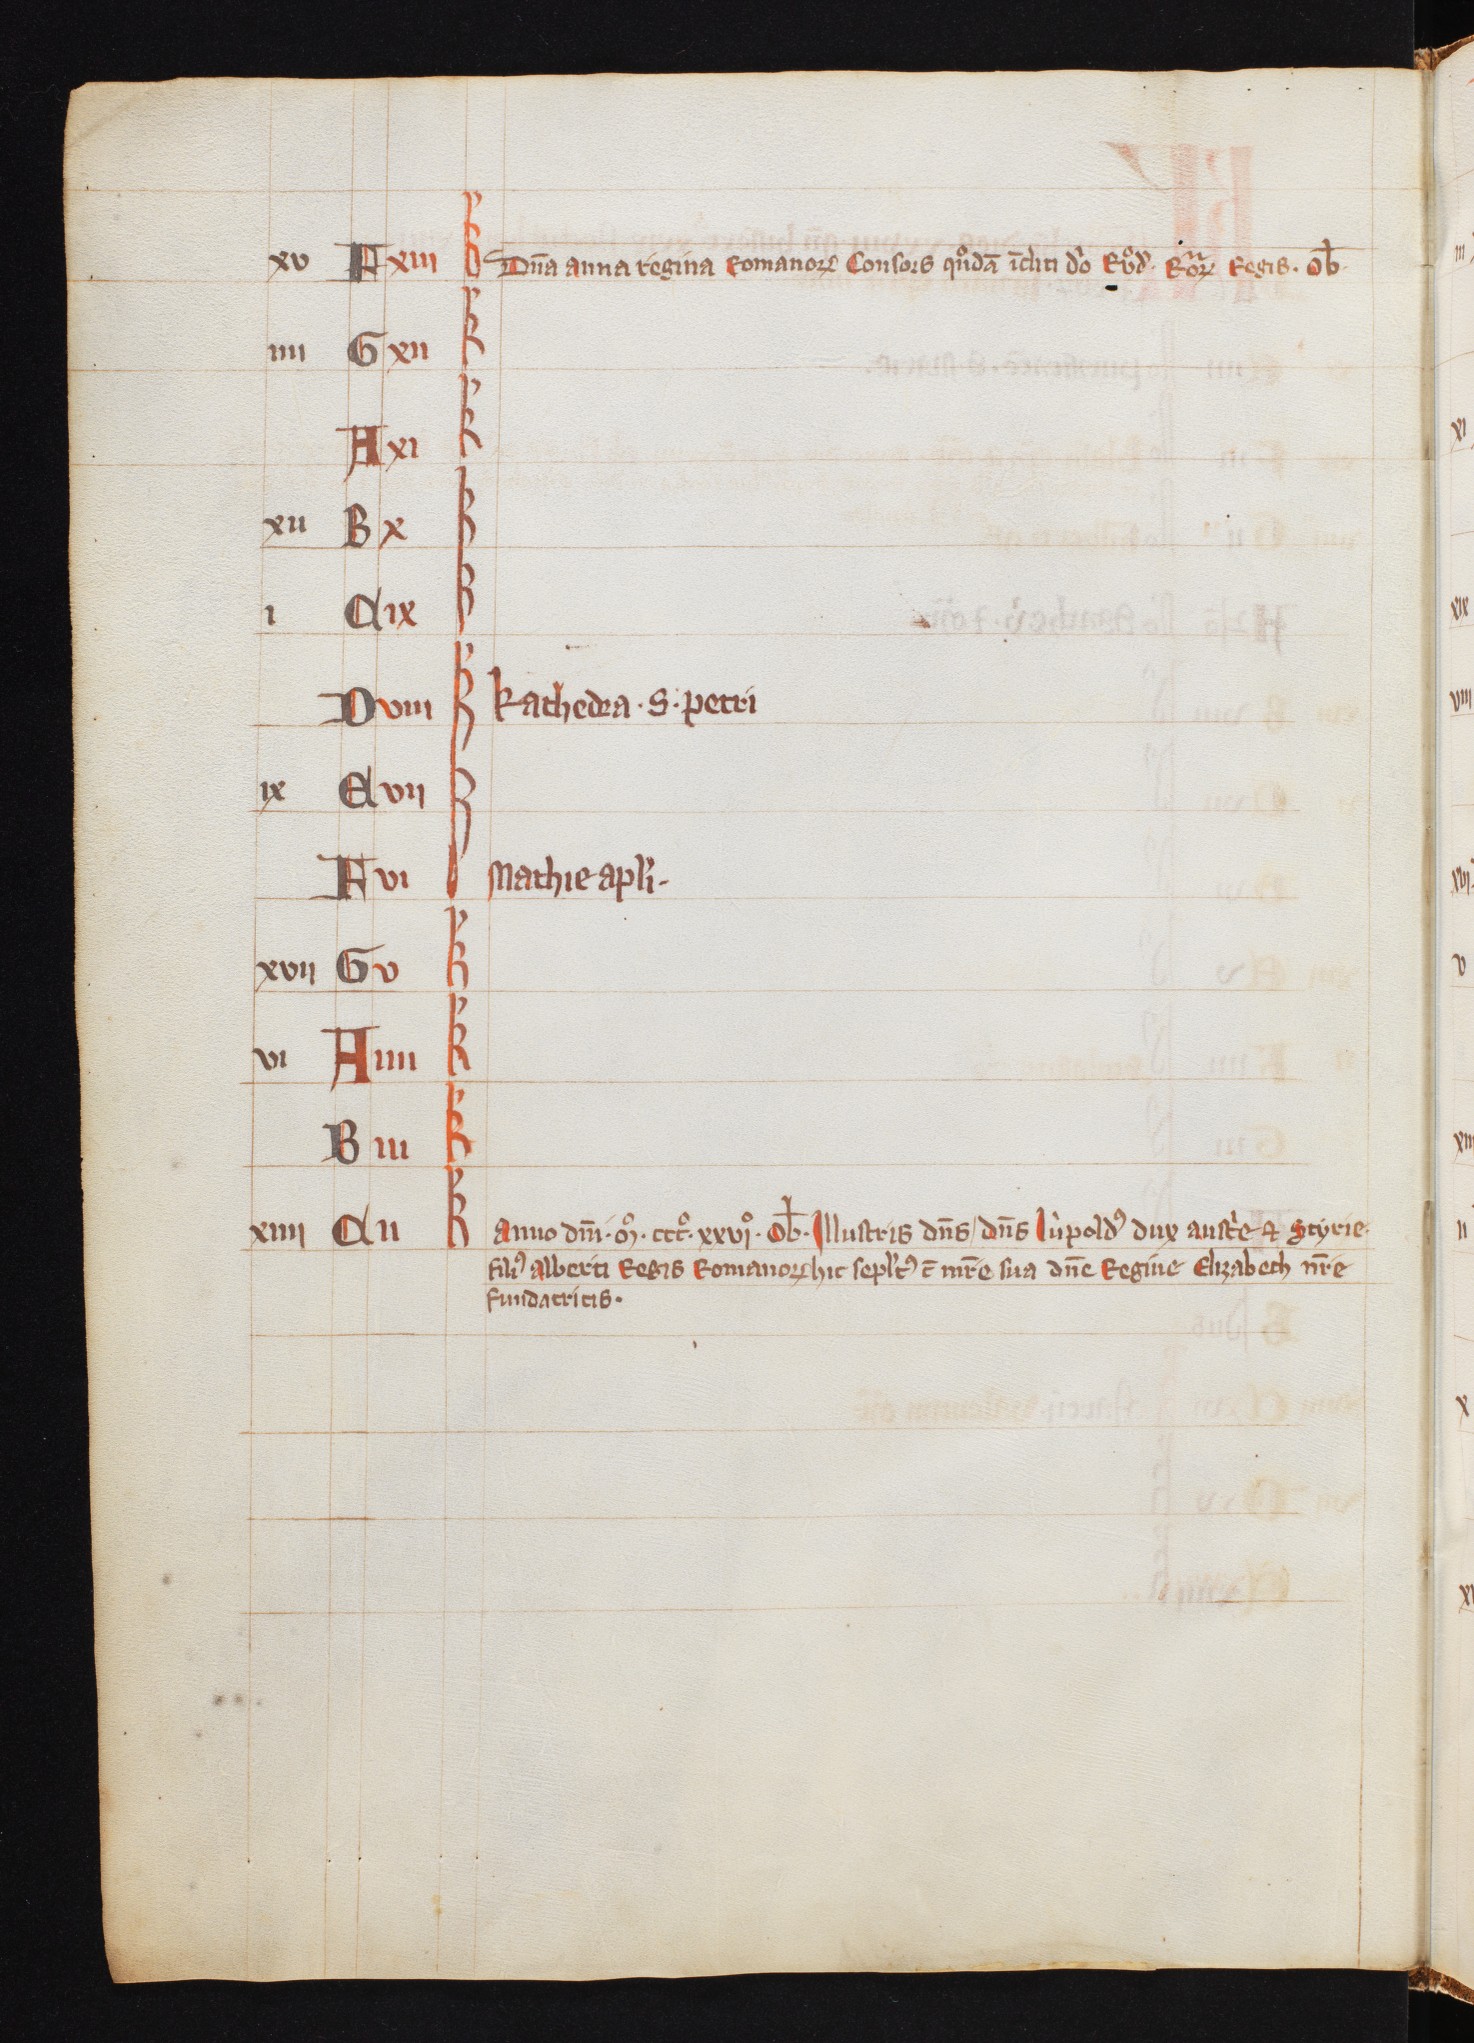 xv F xiii k Dn̄a anna regina Romanorꝝ Consors qͦndā īcliti dn̄i Rvͦd. Rōorꝝ Regis. Ob̄.
iiii G xii k
A xi k
xii B x k
i C ix k
D viii k kathedra · S · petri
ix E vii k
F vi k Mathie apli.
xvii G v k
vi A iiii k
B iii k
xiiii C ii k Anno dn̄i · mͦ · cccͦ · xxviͦ · Ob̄ · Illustris dn̄s / dn̄s lùpoldꝰ dux auste̾ ⁊ Styrie ·
filiꝰ alberti Regis Romanorꝝ hic sepl̾tꝰ c̄ mr̄e sua dn̄e Regine Elizabeth nr̄e
fundatricis ·